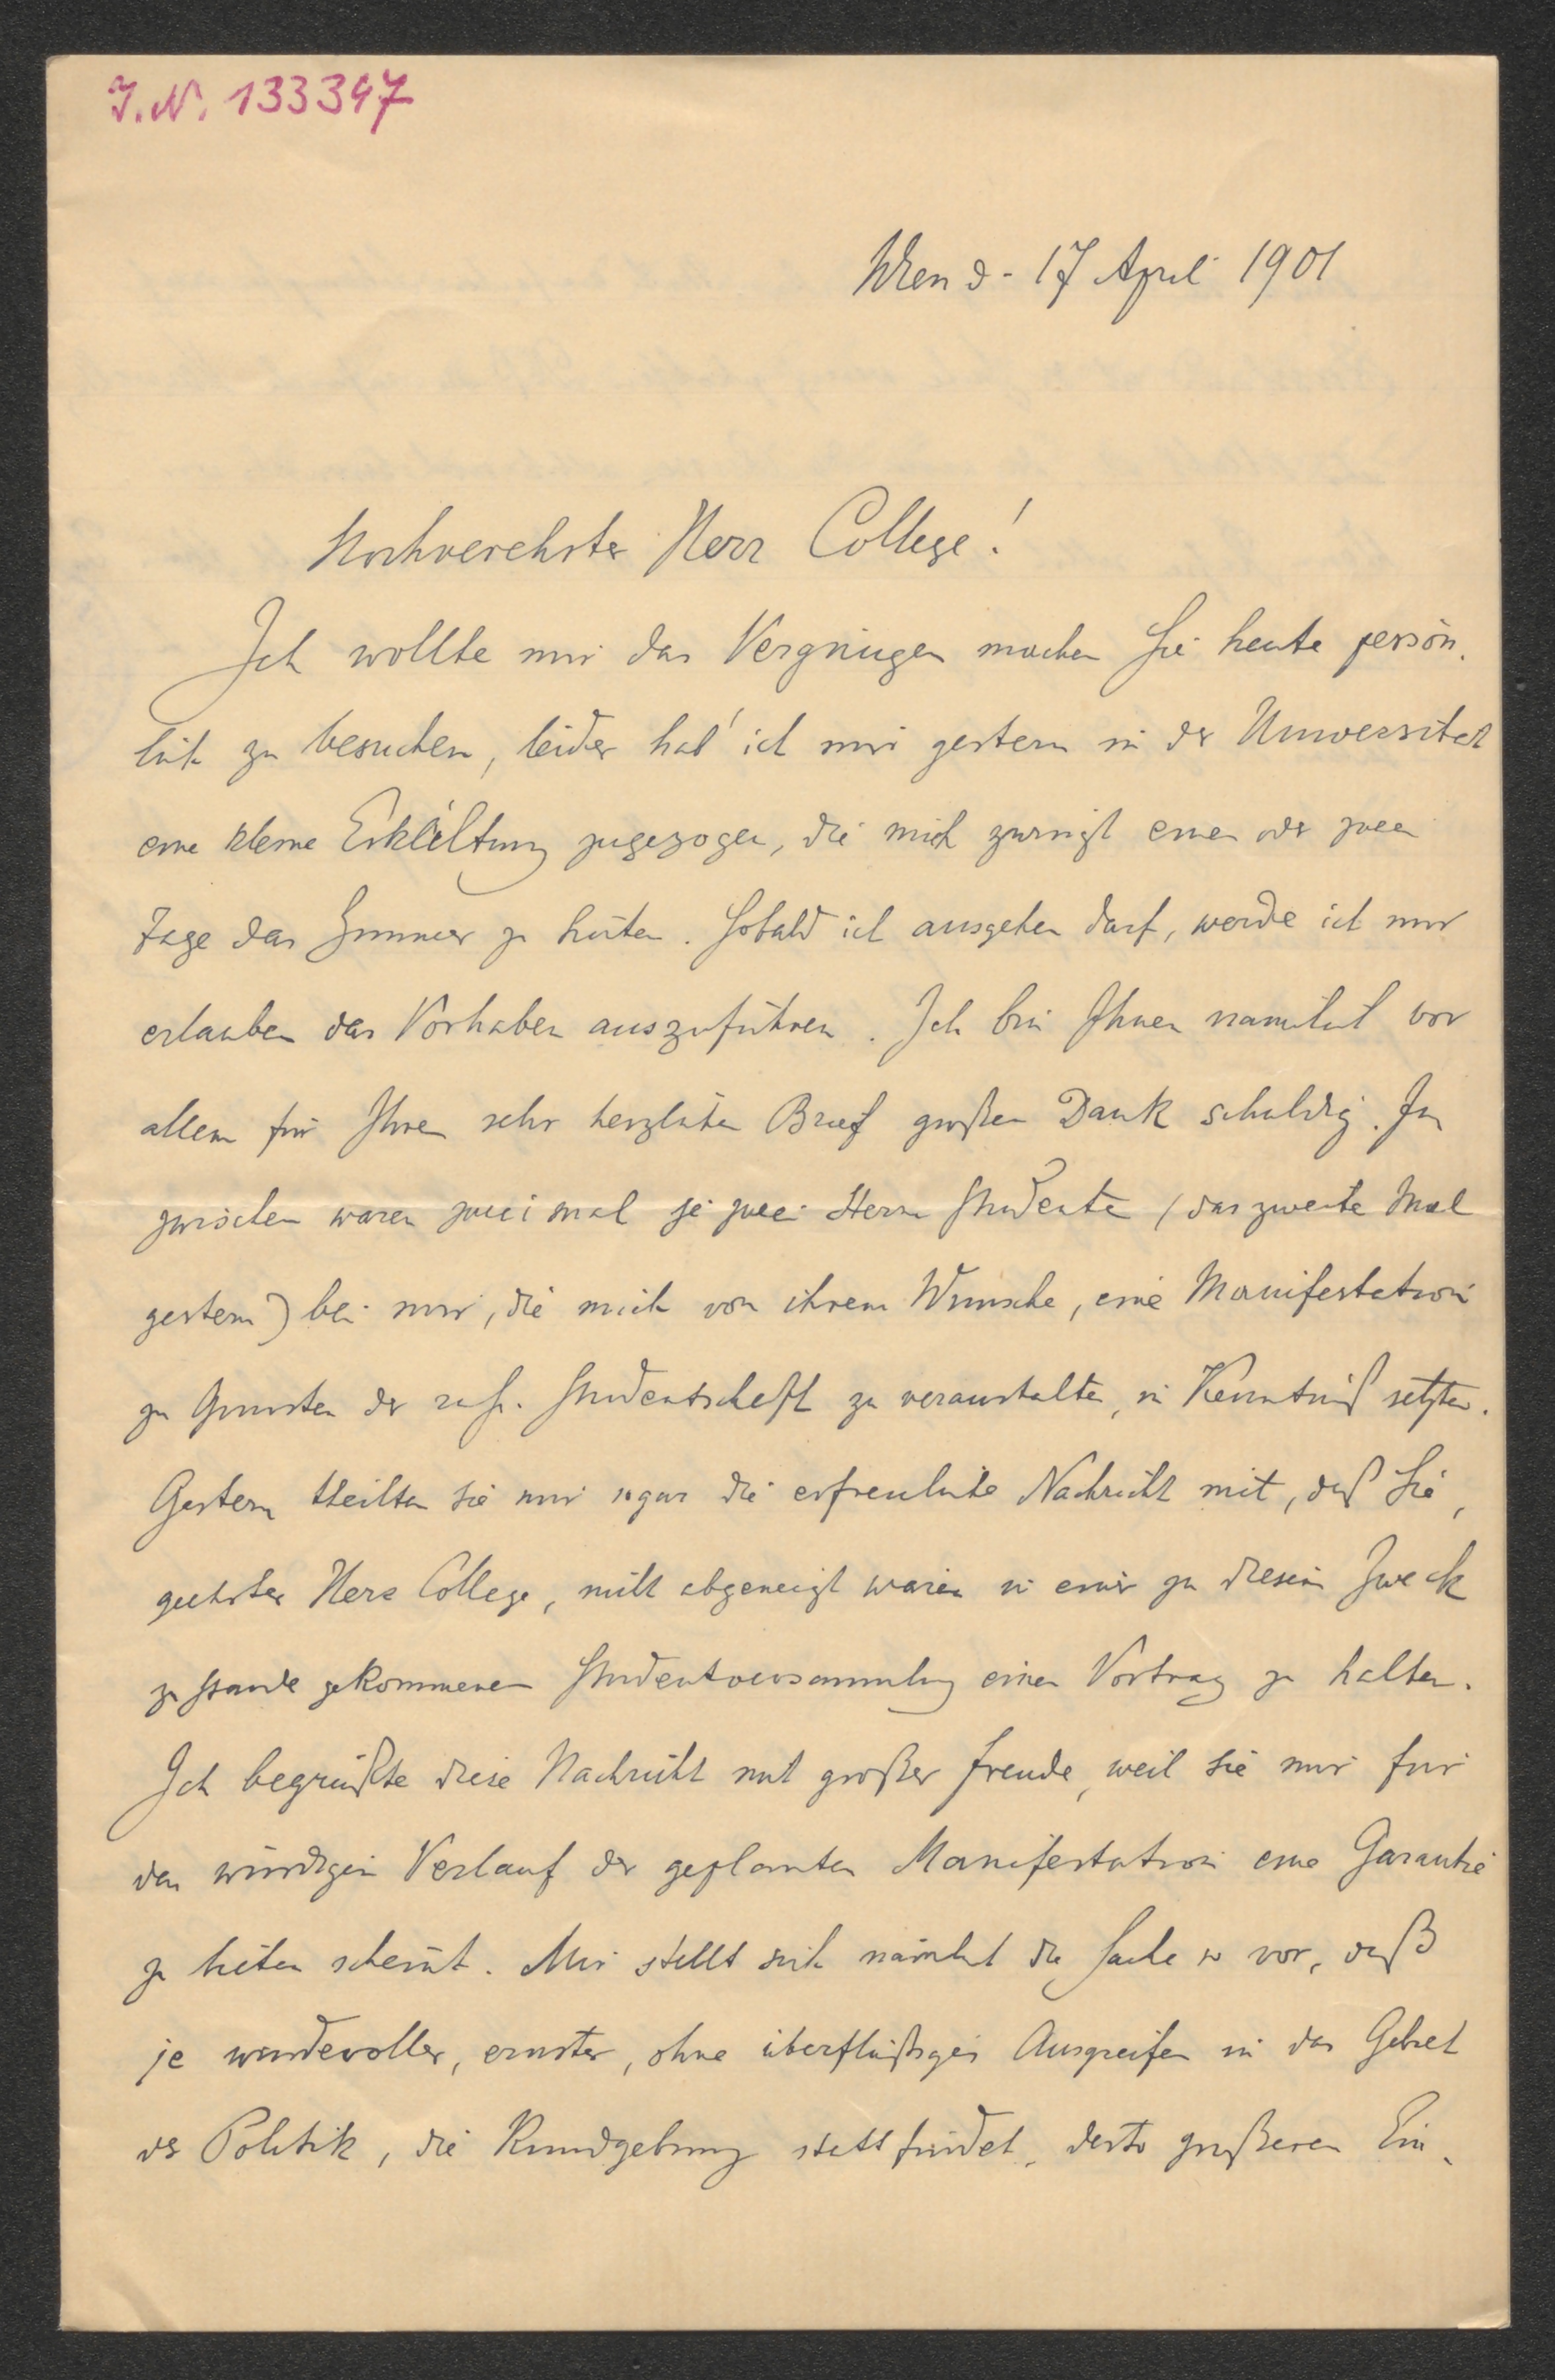 J.N. 133347
Wien d. 17 April 1901
Hochverehrter Herr College!
Ich wollte mir das Vergnügen machen Sie heute persön-
lich zu besuchen, leider hab' ich mir gestern in der Universität
eine kleine Erkältung zugezogen, die mich zwingt einen oder zwei
Tage das Zimmer zu hüten. Sobald ich ausgehen darf, werde ich mir
erlauben das Vorhaben auszuführen. Ich bin Ihnen nämlich vor
allem für Ihren sehr herzlichen Brief großen Dank schuldig. In
zwischen waren zwei mal je zwei Herrn Studenten (das zweite Mal
gestern) bei mir, die mich von ihrem Wunsche, eine Manifestation
zu Gunsten der russ. Studentschaft zu veranstalten, in Kenntniß setzten.
Gestern theilten sie mir sogar die erfreuliche Nachricht mit, daß Sie,
geehrter Herr College, nicht abgeneigt wären in einer zu diesem Zweck
zu stande gekommenen Studentversammlung einen Vortrag zu halten.
Ich begrüßte diese Nachricht mit großer Freude, weil sie mir für
den würdigen Verlauf der geplanten Manifestation eine Garantie
zu bieten scheint. Mir stellt sich nämlich die Sache so vor, daß
je würdevoller, ernster, ohne überflüßiges Ausgreifen in das Gebiet
der Politik, die Kundgebung stattfindet, desto größeren Ein-